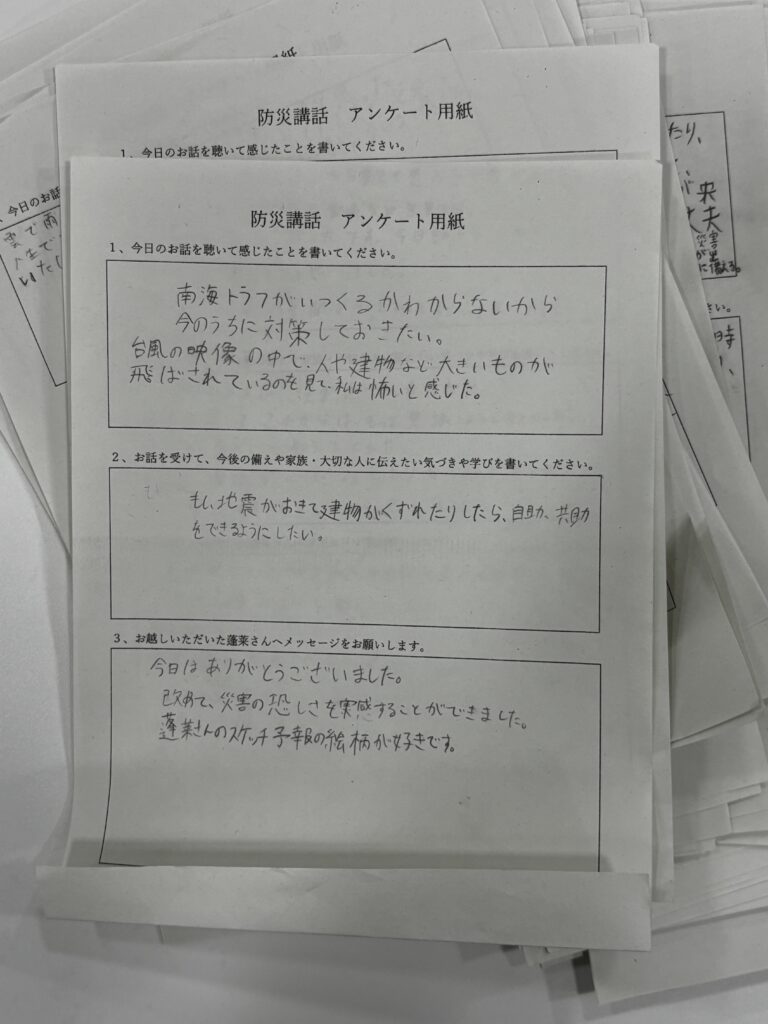 防災講話　アンケート用紙
1、今日のお話を聴いて感じたことを書いてください。
防災講話　アンケート用紙
1、今日のお話を聴いて感じたことを書いてください。
南海トラフがいつくるかわからないから
今のうちに対策しておきたい。
台風の映像の中で、人や建物など大きいものが
飛ばされているのを見て、私は怖いと感じた。
2、お話を受けて、今後の備えや家族・大切な人に伝えたい気づきや学びを書いてください。
もし、地震がおきて建物がくずれたりしたら、自助、共助
をできるようにしたい。
3、お越しいただいた蓬莱さんへメッセージをお願いします。
今日はありがとうございました。
改めて、災害の恐しさを実感することができました。
蓬莱さんのスケッチ予報の絵柄が好きです。
今日のお話
雲で雨
たり、
央
夫
災害
に備える。
さい。
時